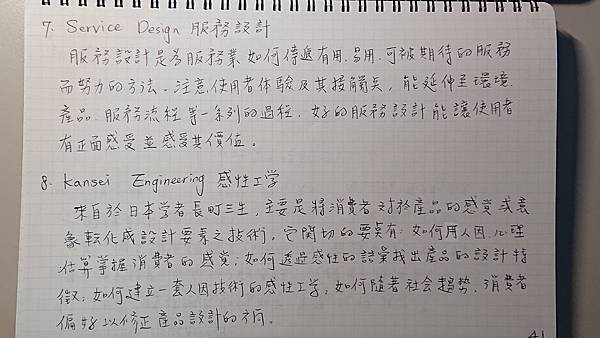 7. Service Design 服務設計
服務設計是為服務業、如何傳遞有用、易用、可被期待的服務
而努力的方法。注意使用者体験及其接觸点，能延伸至環境、
產品、服務流程等一系列的過程，好的服務設計能讓使用者
有正面感受並感受其價值。
8. Kansei Engineering 感性工学
來自於日本学者長町三生，主要是將消費者对於產品的感覚或意
象転化成設計要素之技術。它関切的要点有：如何用人因、心理
估算掌握消費者的感覚；如何透過感性的語彙找出產品的設計特
徵；如何建立一套人因技術的感性工学，如何隨著社会趨勢、消費者
偏好以修正產品設計的方向。
41